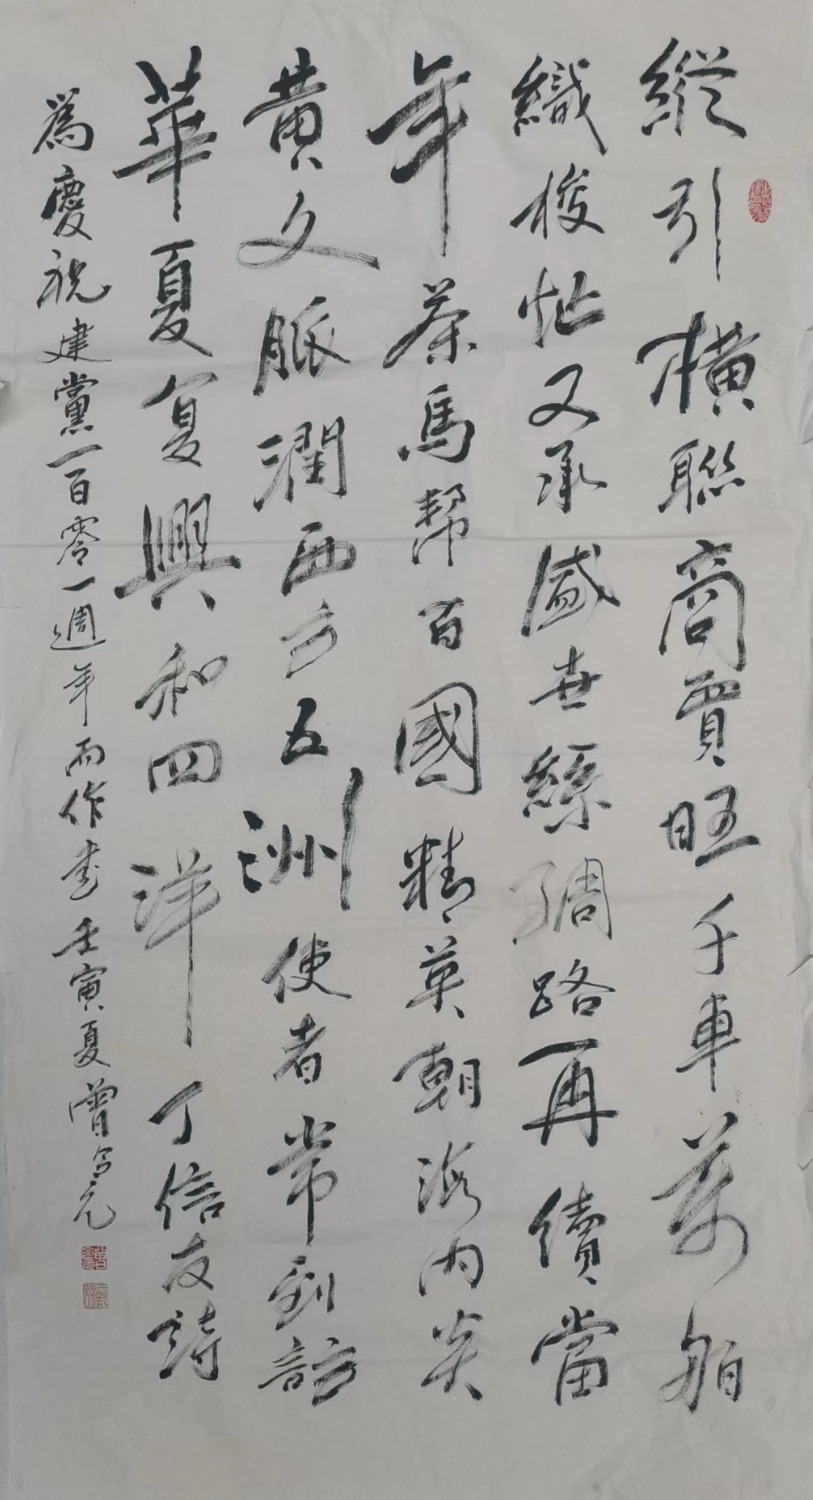 縱引橫聯商賈旺千車萬舶
織梭忙又承盛世絲綢路再續當
年茶馬幫百國精英朝海內炎
黃文脈潤西方五洲使者常到訪
華夏复興和四洋丁信友詩
為慶祝建黨一百零一週年而作書壬寅夏曾令元